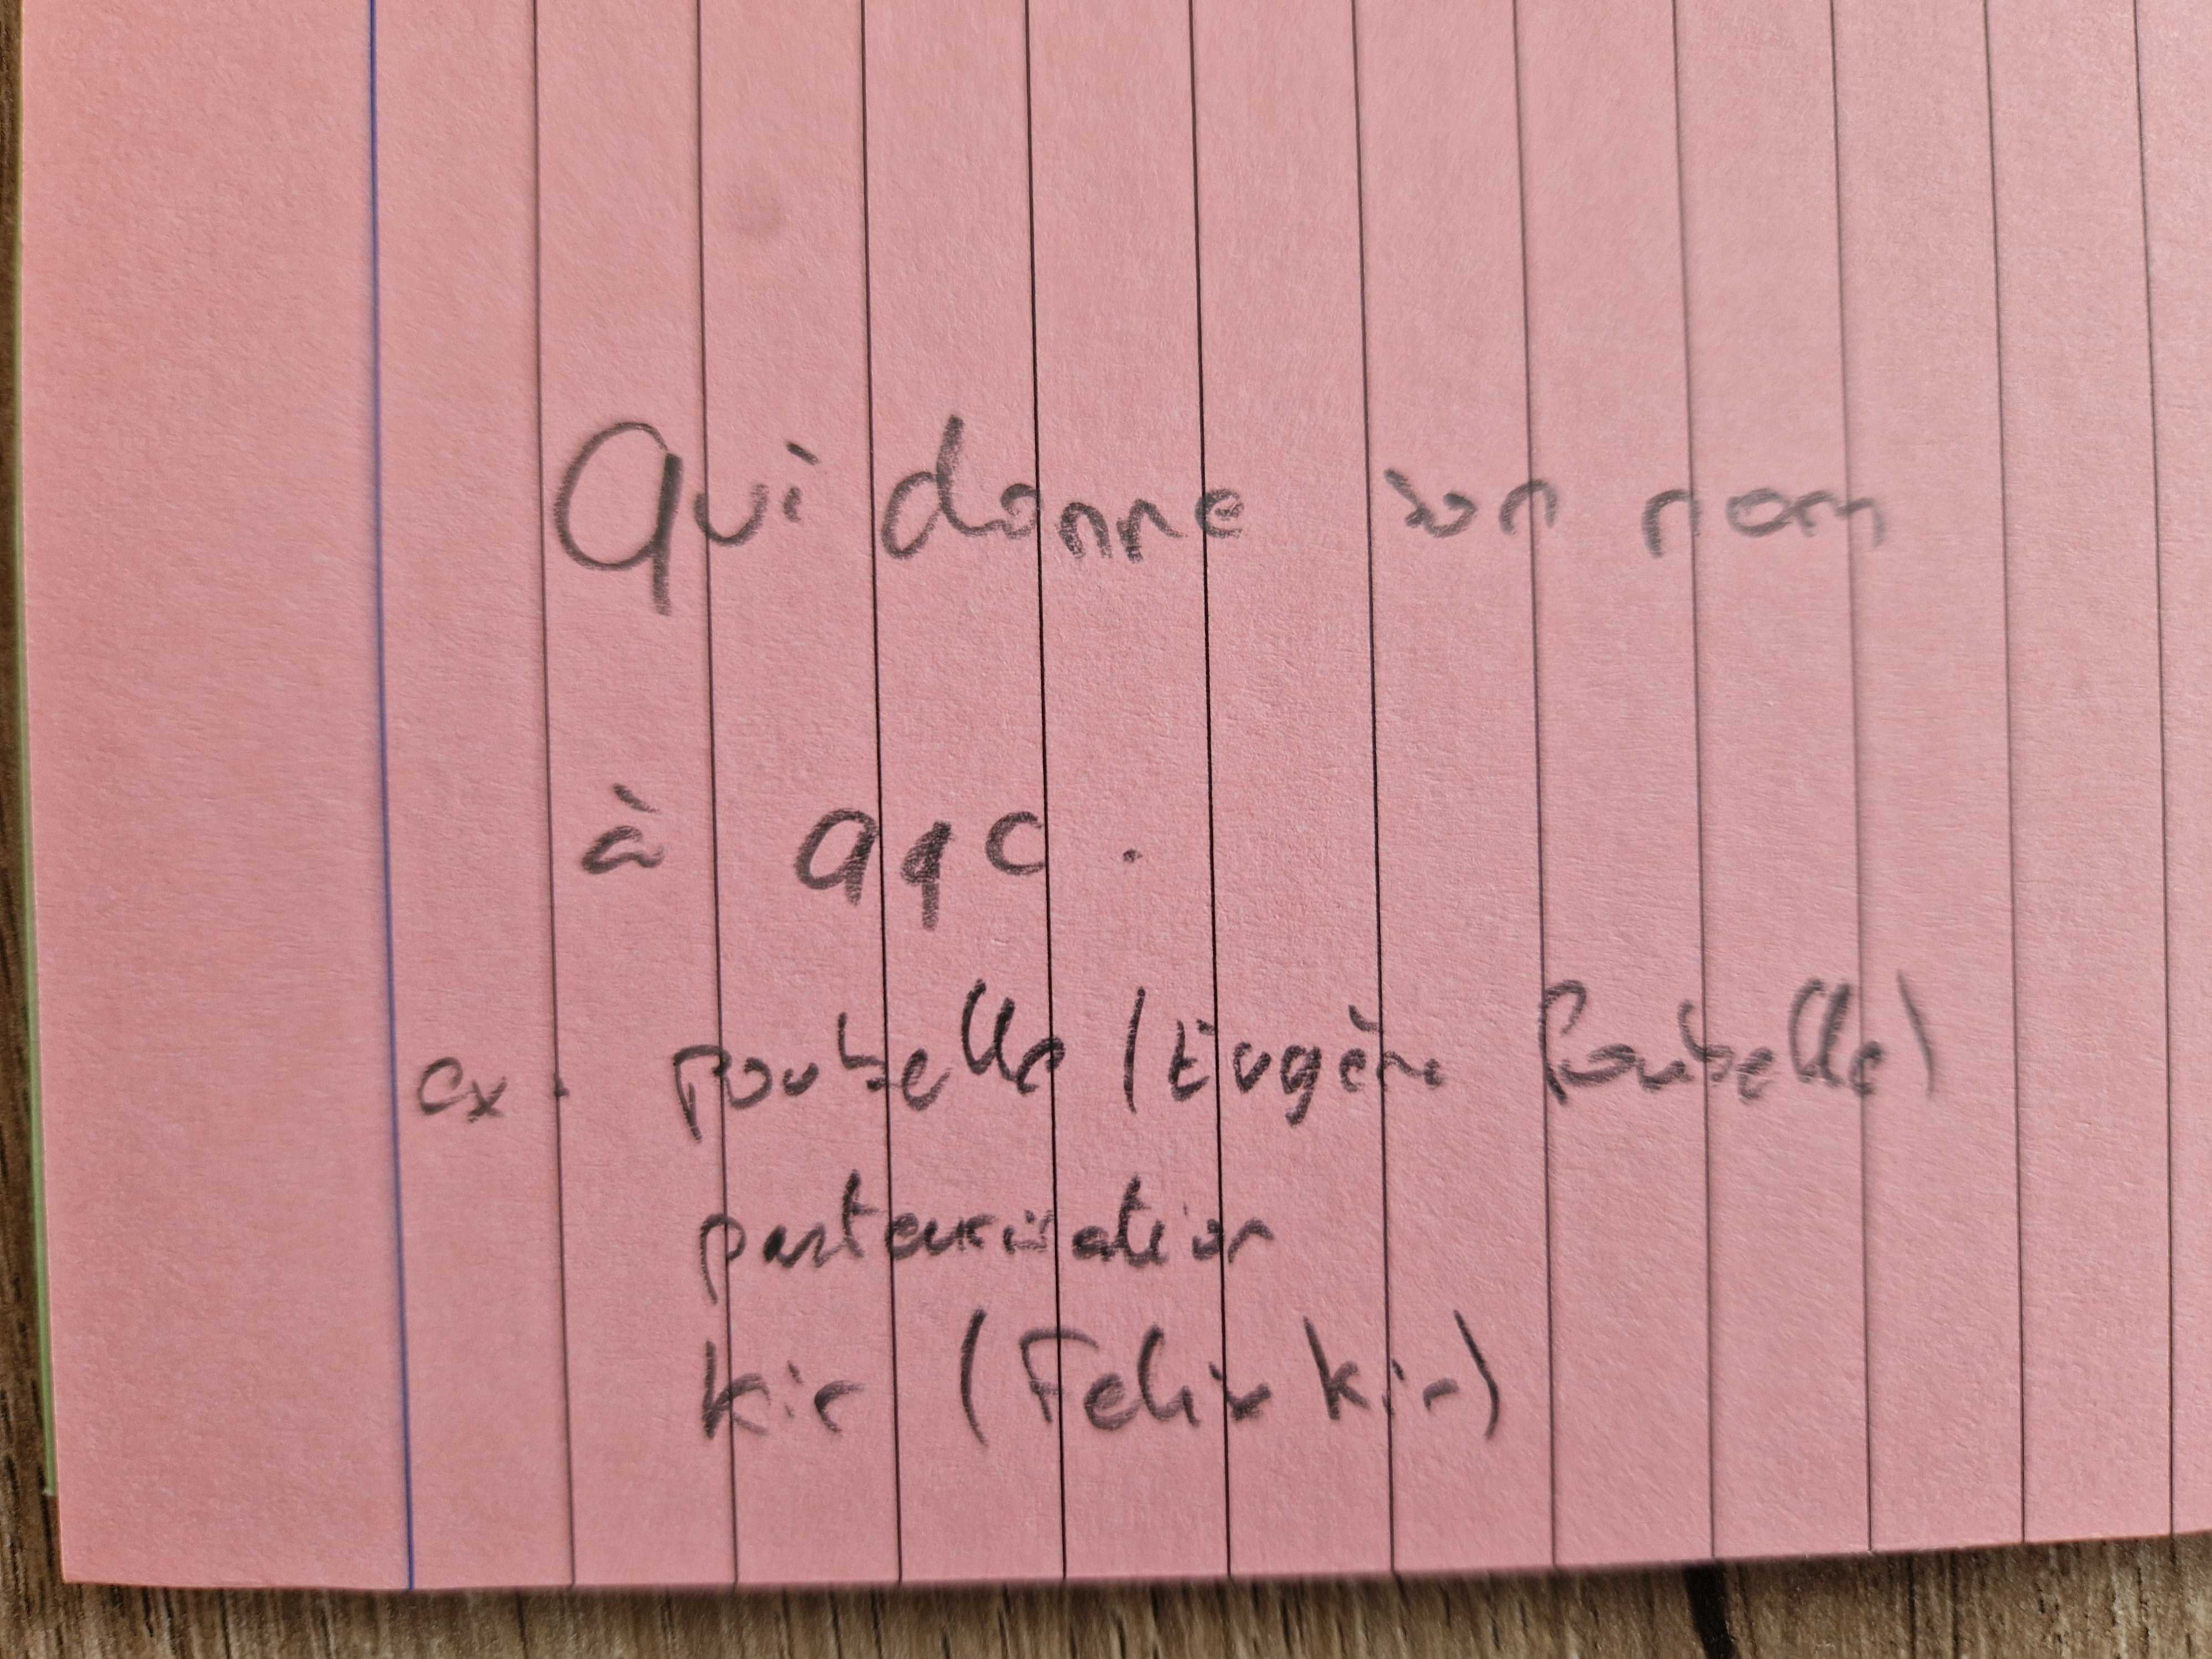 Qui donne son nom
à qqc.
ex. poubelle (Eugène Poubelle)
pasteurisation
kir (Felix kir)